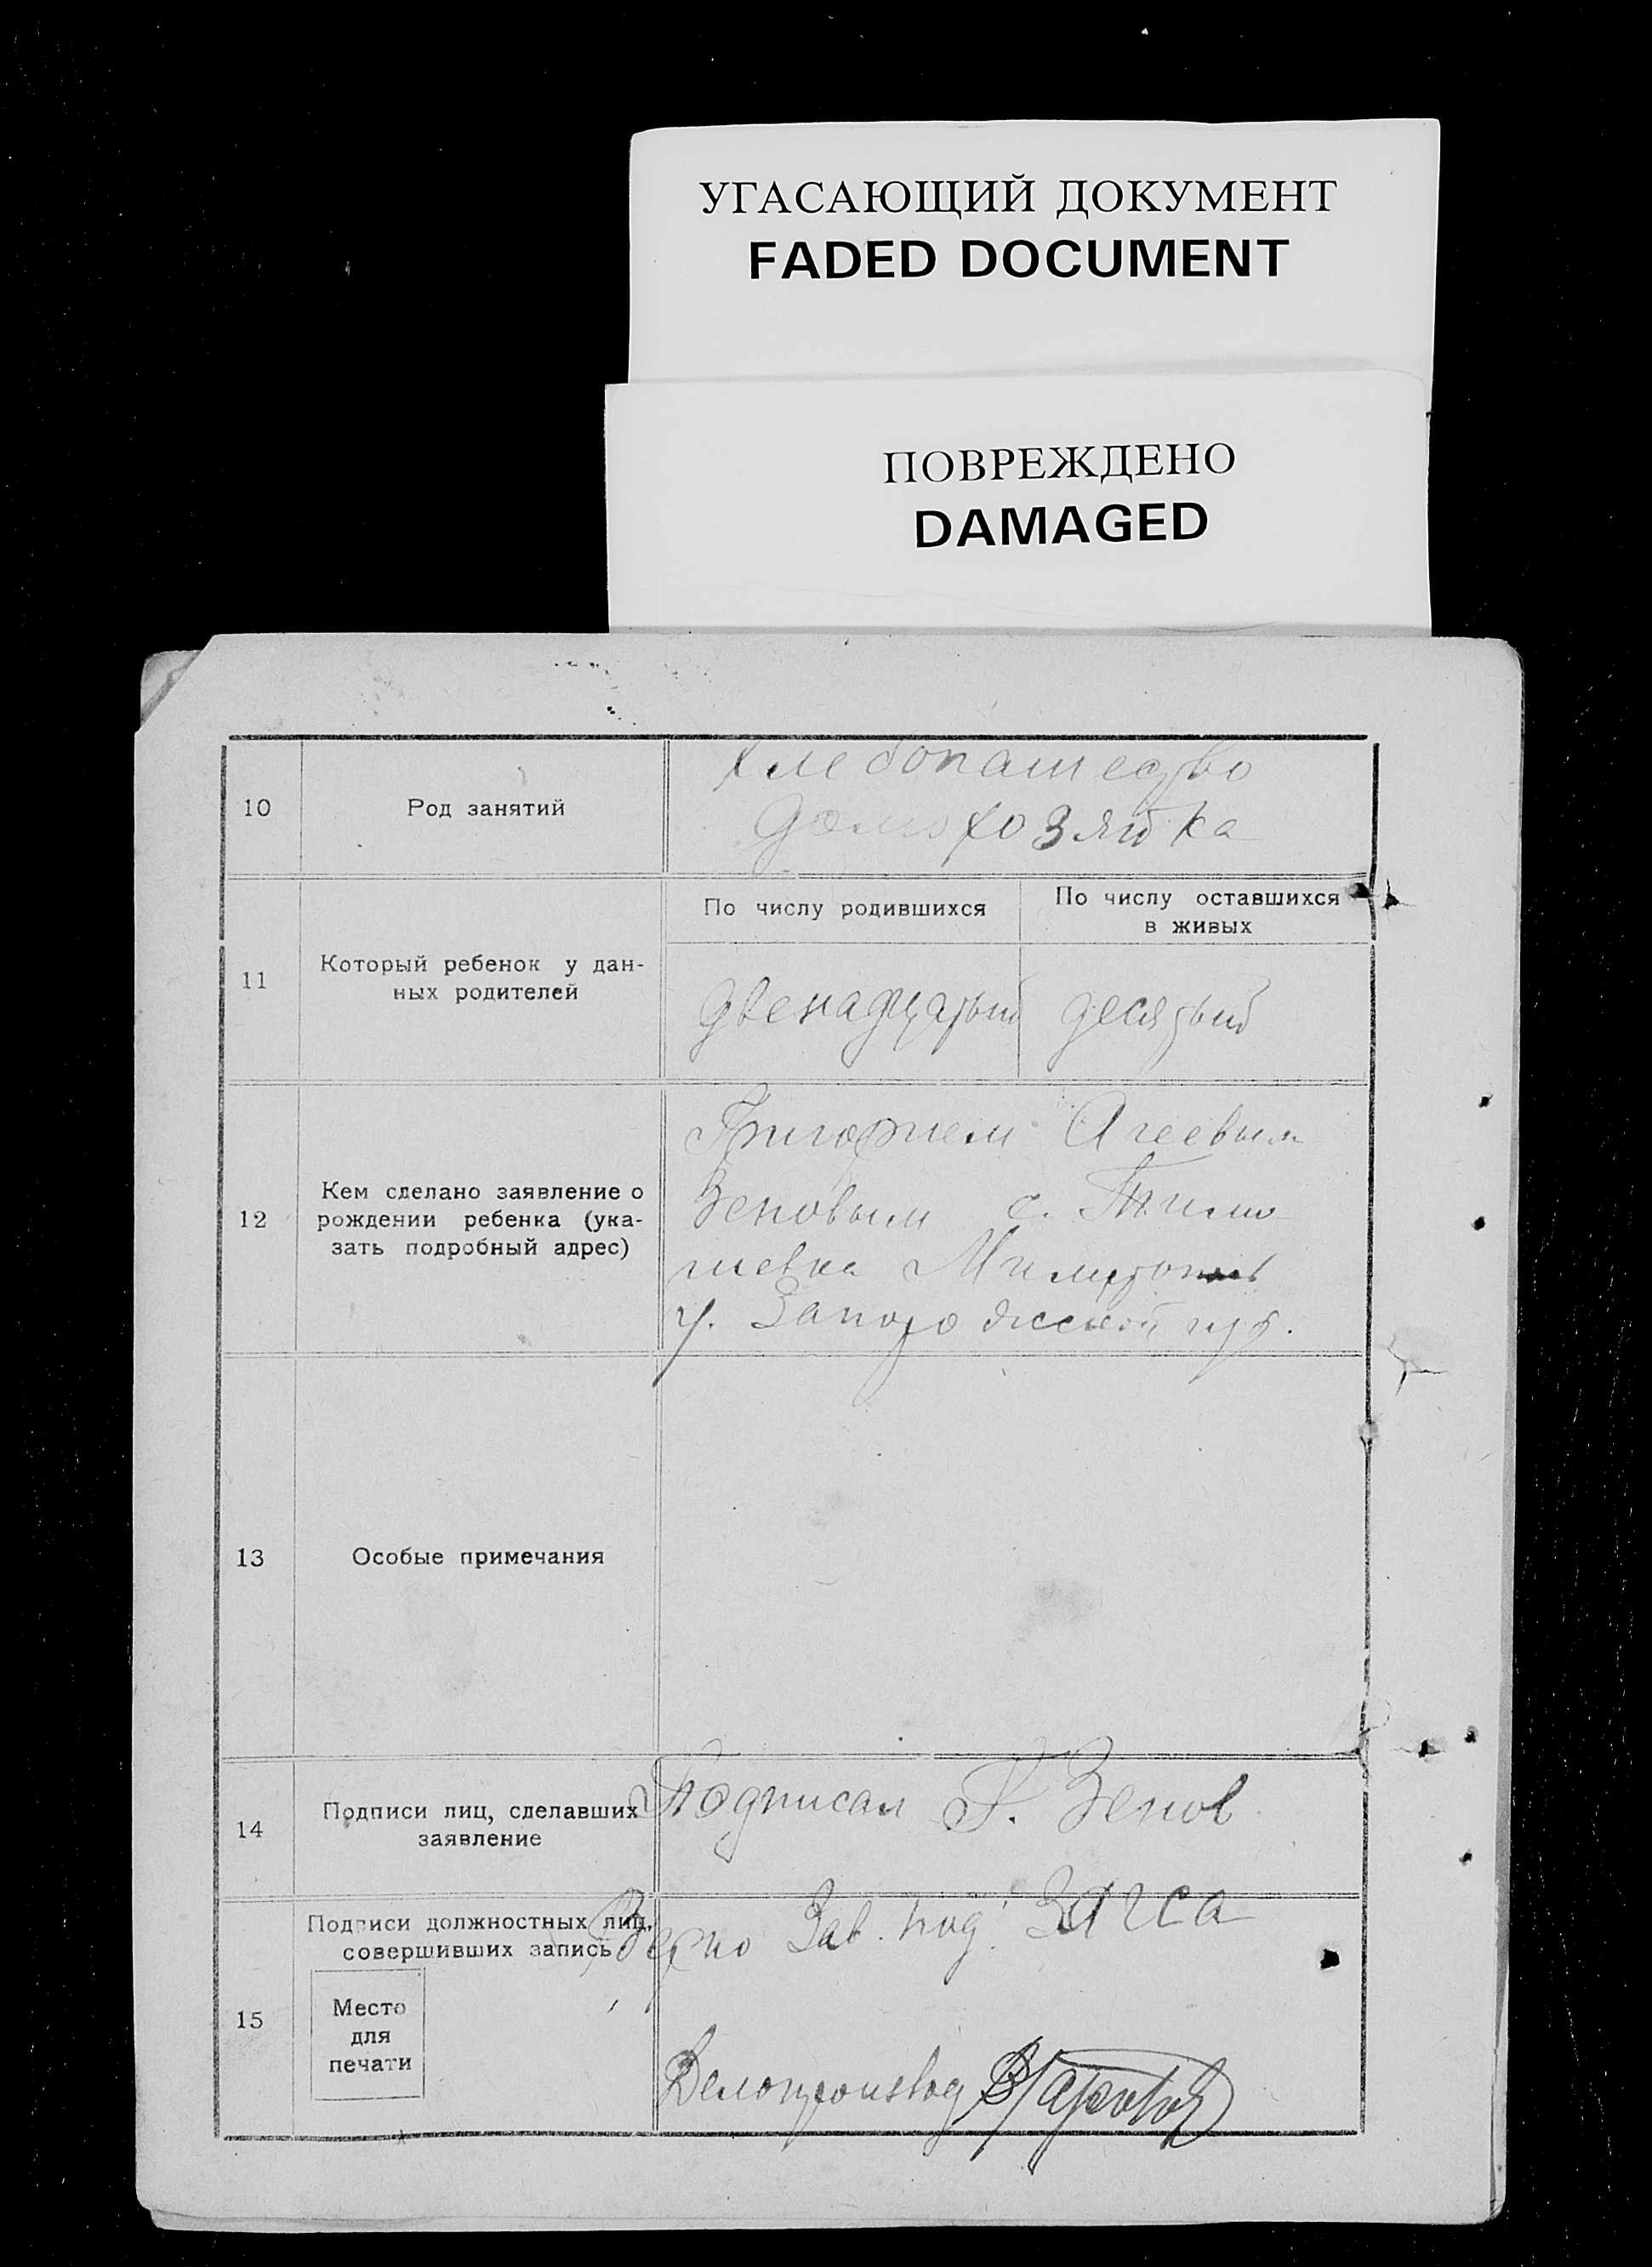 УГАСАЮЩИЙ ДОКУМЕНТ
FADED DOCUMENT
ПОВРЕЖДЕНО
DAMAGED
10
Род занятий
хлебопашество
домохозяйка
11
Который ребенок у дан-
ных родителей
По числу родившихся
По числу оставшихся
в живых
двенадцатый
десятый
12
Кем сделано заявление о
рождении ребенка (ука-
зать подробный адрес)
Григорием Агеевым
Зеновым с. Тимо
шевка
у. Запорожской губ.
13
Особые примечания
14
Подписи лиц, сделавших
заявление
Подписал Г. Зенов
15
Подписи должностных лиц,
совершивших запись
Верно Зав. под. ЗАГСа
Место
для
печати
Делопроизвод